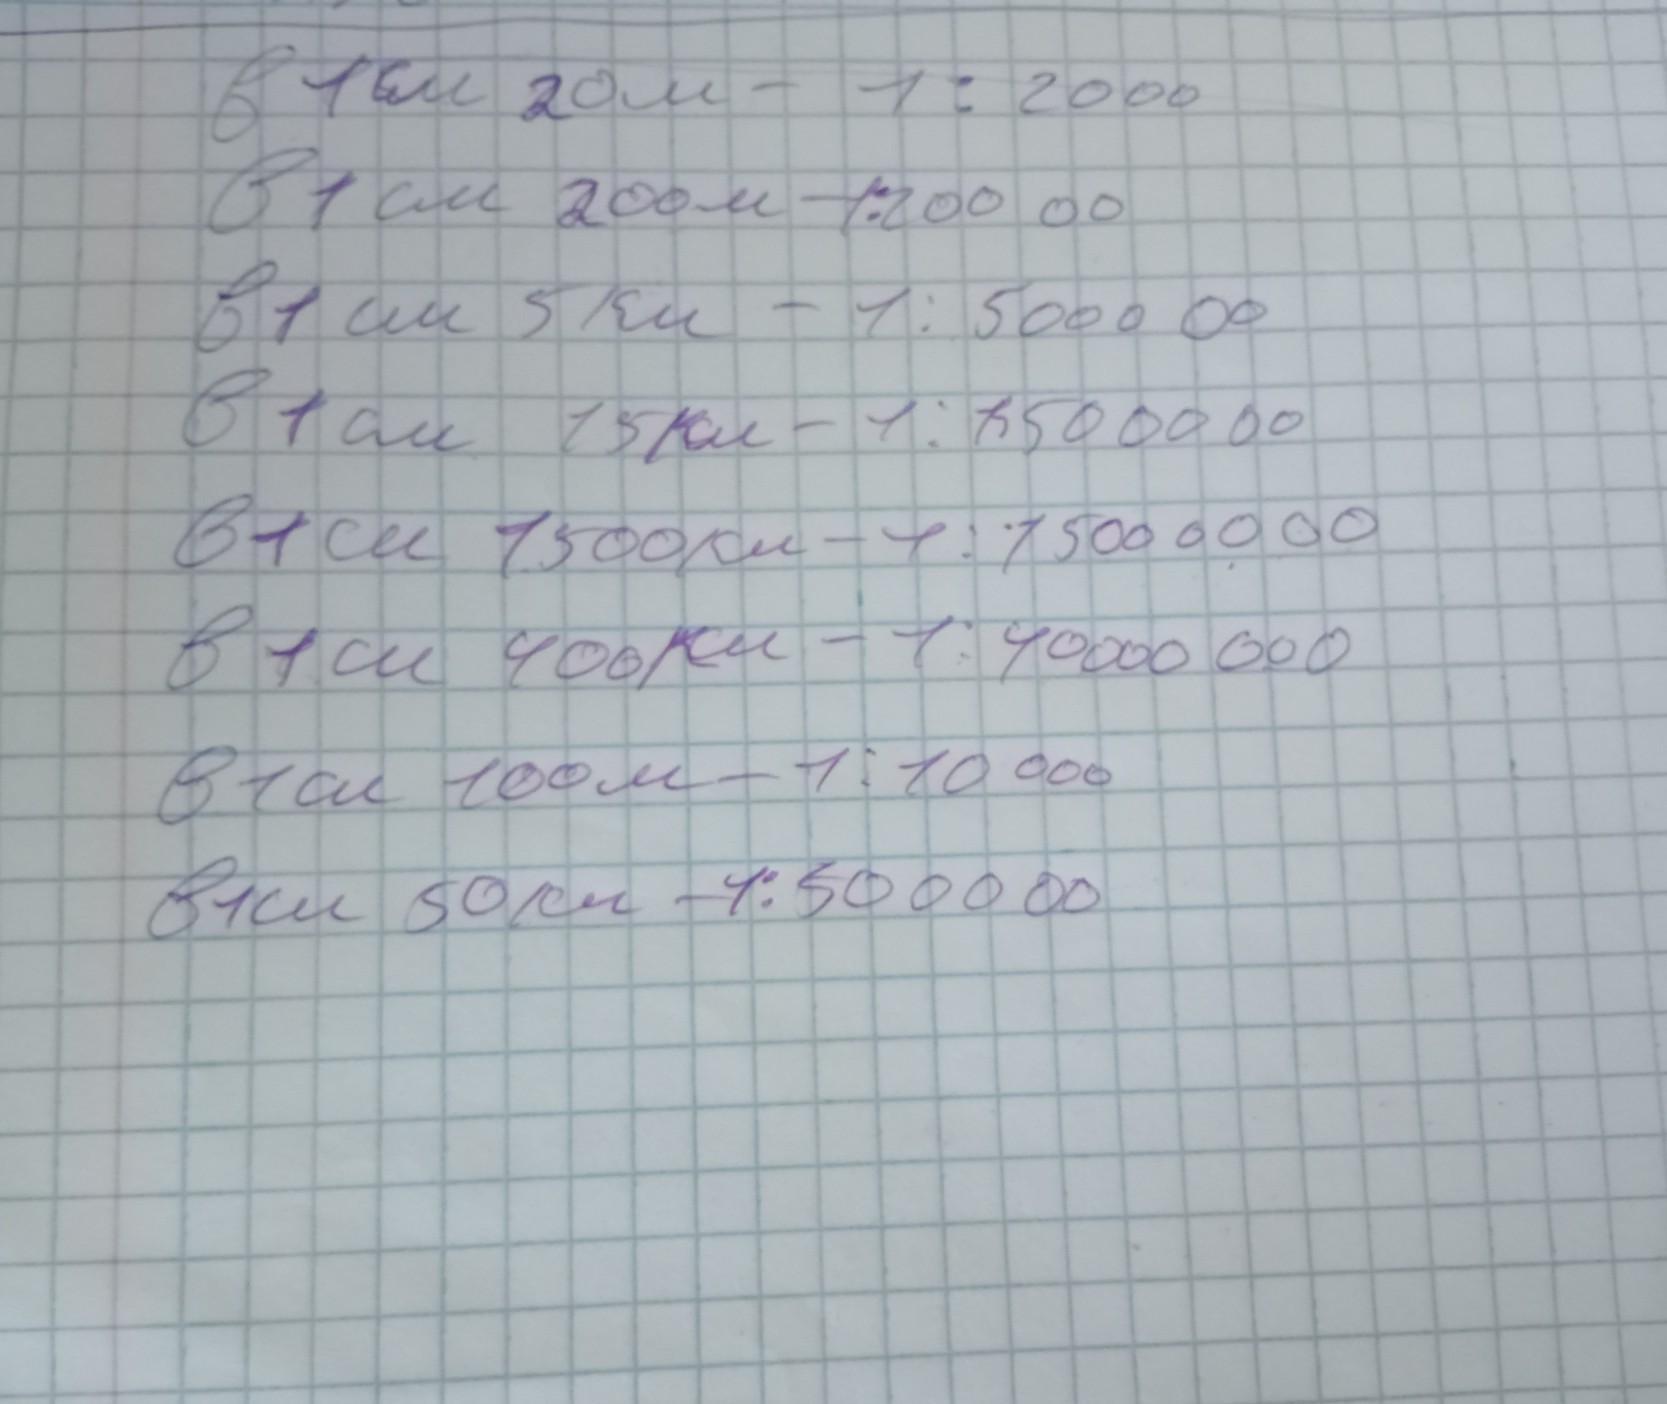 В 1 см 20м – 1: 2000
В 1 см 200м – 1:200 00
В 1 см 5 км – 1: 5000 00
В 1 см 15км – 1: 1500000
В 1 см 1500км – 1: 15000000
В 1 см 400км – 1: 40000 000
В 1 см 100м – 1: 10 000
В 1 см 50км – 1: 500000